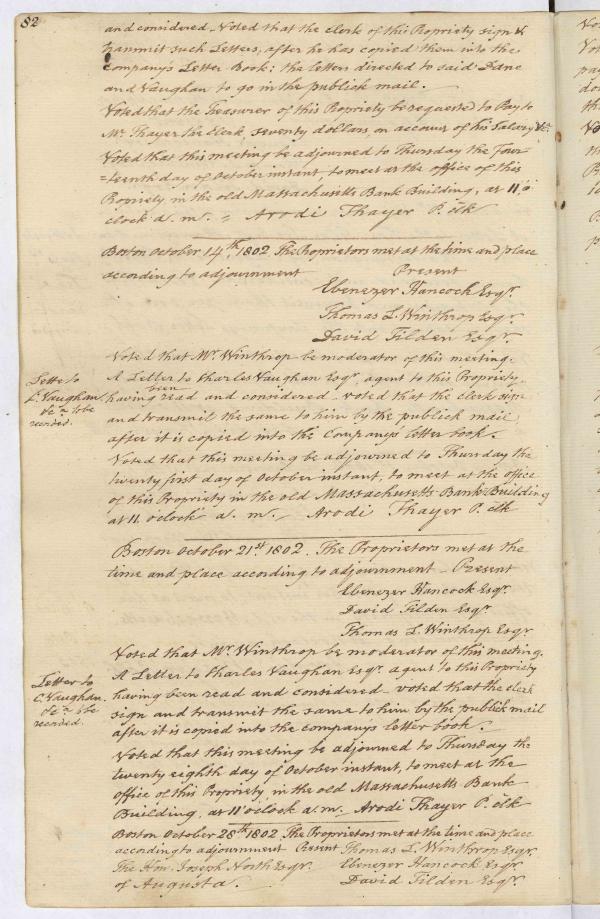 82
and considered - Voted that the clerk of this Propriety sign &
transmit such Letters, after he has copied them into the
company's Letter Book: the letters directed to said Dane
and Vaughan to go in the publick mail.
Voted that the Treasurer of this Propriety be requested to Pay to
Mr. Thayer the Clerk, seventy dollars, on account of his Salary &c.
Voted that this meeting be adjourned to Thursday the Four
=teenth day of October instant, to meet at the office of this
Propriety in the old Massachusetts Bank Building, at 11 o
clock a. m. = Arodi Thayer P. clk
Boston October 14th, 1802 The Proprietors met at the time and place
according to adjournment Present
Ebenezer Hancock Esqr.
Thomas L. Winthrop Esqr.
David Tilden Esqr.
Voted that Mr. Winthrop be moderator of this meeting.
Letter to
C. Vaughan
&c a to be
recorded.
A Letter to Charles Vaughan Esqr. agent to this Propriety,
having been read and considered - voted that the clerk sign
and transmit the same to him by the publick mail
after it is copied into the Company's letter book.
Voted that this meeting be adjourned to Thursday the
twenty first day of October instant, to meet at the office
of this Propriety in the old Massachusetts Bank Building
at 11 o'clock a. m. Arodi Thayer P. clk
Boston October 21st. 1802. The Proprietors met at the
time and place according to adjournment - Present
Ebenezer Hancock Esqr.
David Tilden Esqr.
Thomas L. Winthrop Esqr
Voted that Mr. Winthrop be moderator of this meeting.
Letter to
C. Vaughan
&c a to be
recorded.
A Letter to Charles Vaughan Esqr. agent to this Propriety
having been read and considered - voted that the clerk
sign and transmit the same to him by the publick mail
after it is copied into the company's letter book.
Voted that this meeting be adjourned to Thursday the
twenty eighth day of October instant, to meet at the
office of this Propriety in the old Massachusetts Bank
Building, at 11 o'clock a. m. Arodi Thayer P. clk
Boston October 28th 1802 The Proprietors met at the time and place
according to adjournment Present Thomas L. Winthrop Esqr.
The Hon. Joseph North Esqr. Ebenezer Hancock Esqr
of Augusta. David Tilden Esqr.